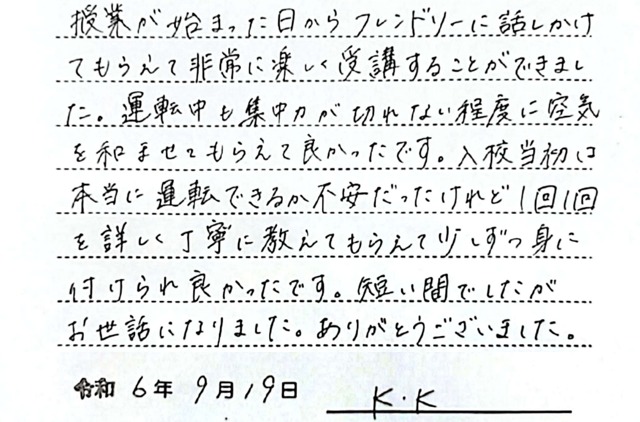 授業が始まった日からフレンドリーに話しかけ
てもらえて非常に楽しく受講することができまし
た。運転中も集中力が切れない程度に空気
を和ませてもらえて良かったです。入校当初は
本当に運転できるか不安だったけれど1回1回
を詳しく丁寧に教えてもらえて少しずつ身に
付けられ良かったです。短い間でしたが
お世話になりました。ありがとうございました。
令和 6年 9月19日 K.K